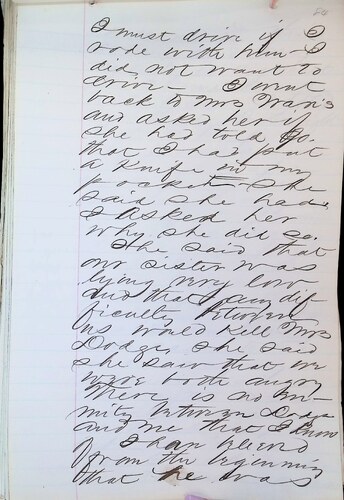 I must drive if I
rode with him - I
did not want to
drive - I went
back to Mrs Ware's
and asked her if
she had told Jo.
that I had put
a knife in my
pocket. She
said she had.
I asked her
why she did so.
She said that
our sister was
lying very low
and that any dif-
ficulty between
us would kill Mrs
Dodge. She said
she saw that we
were both angry
There is no en-
mity between Dodge
and me that I know
I have
from the beginning
that he was